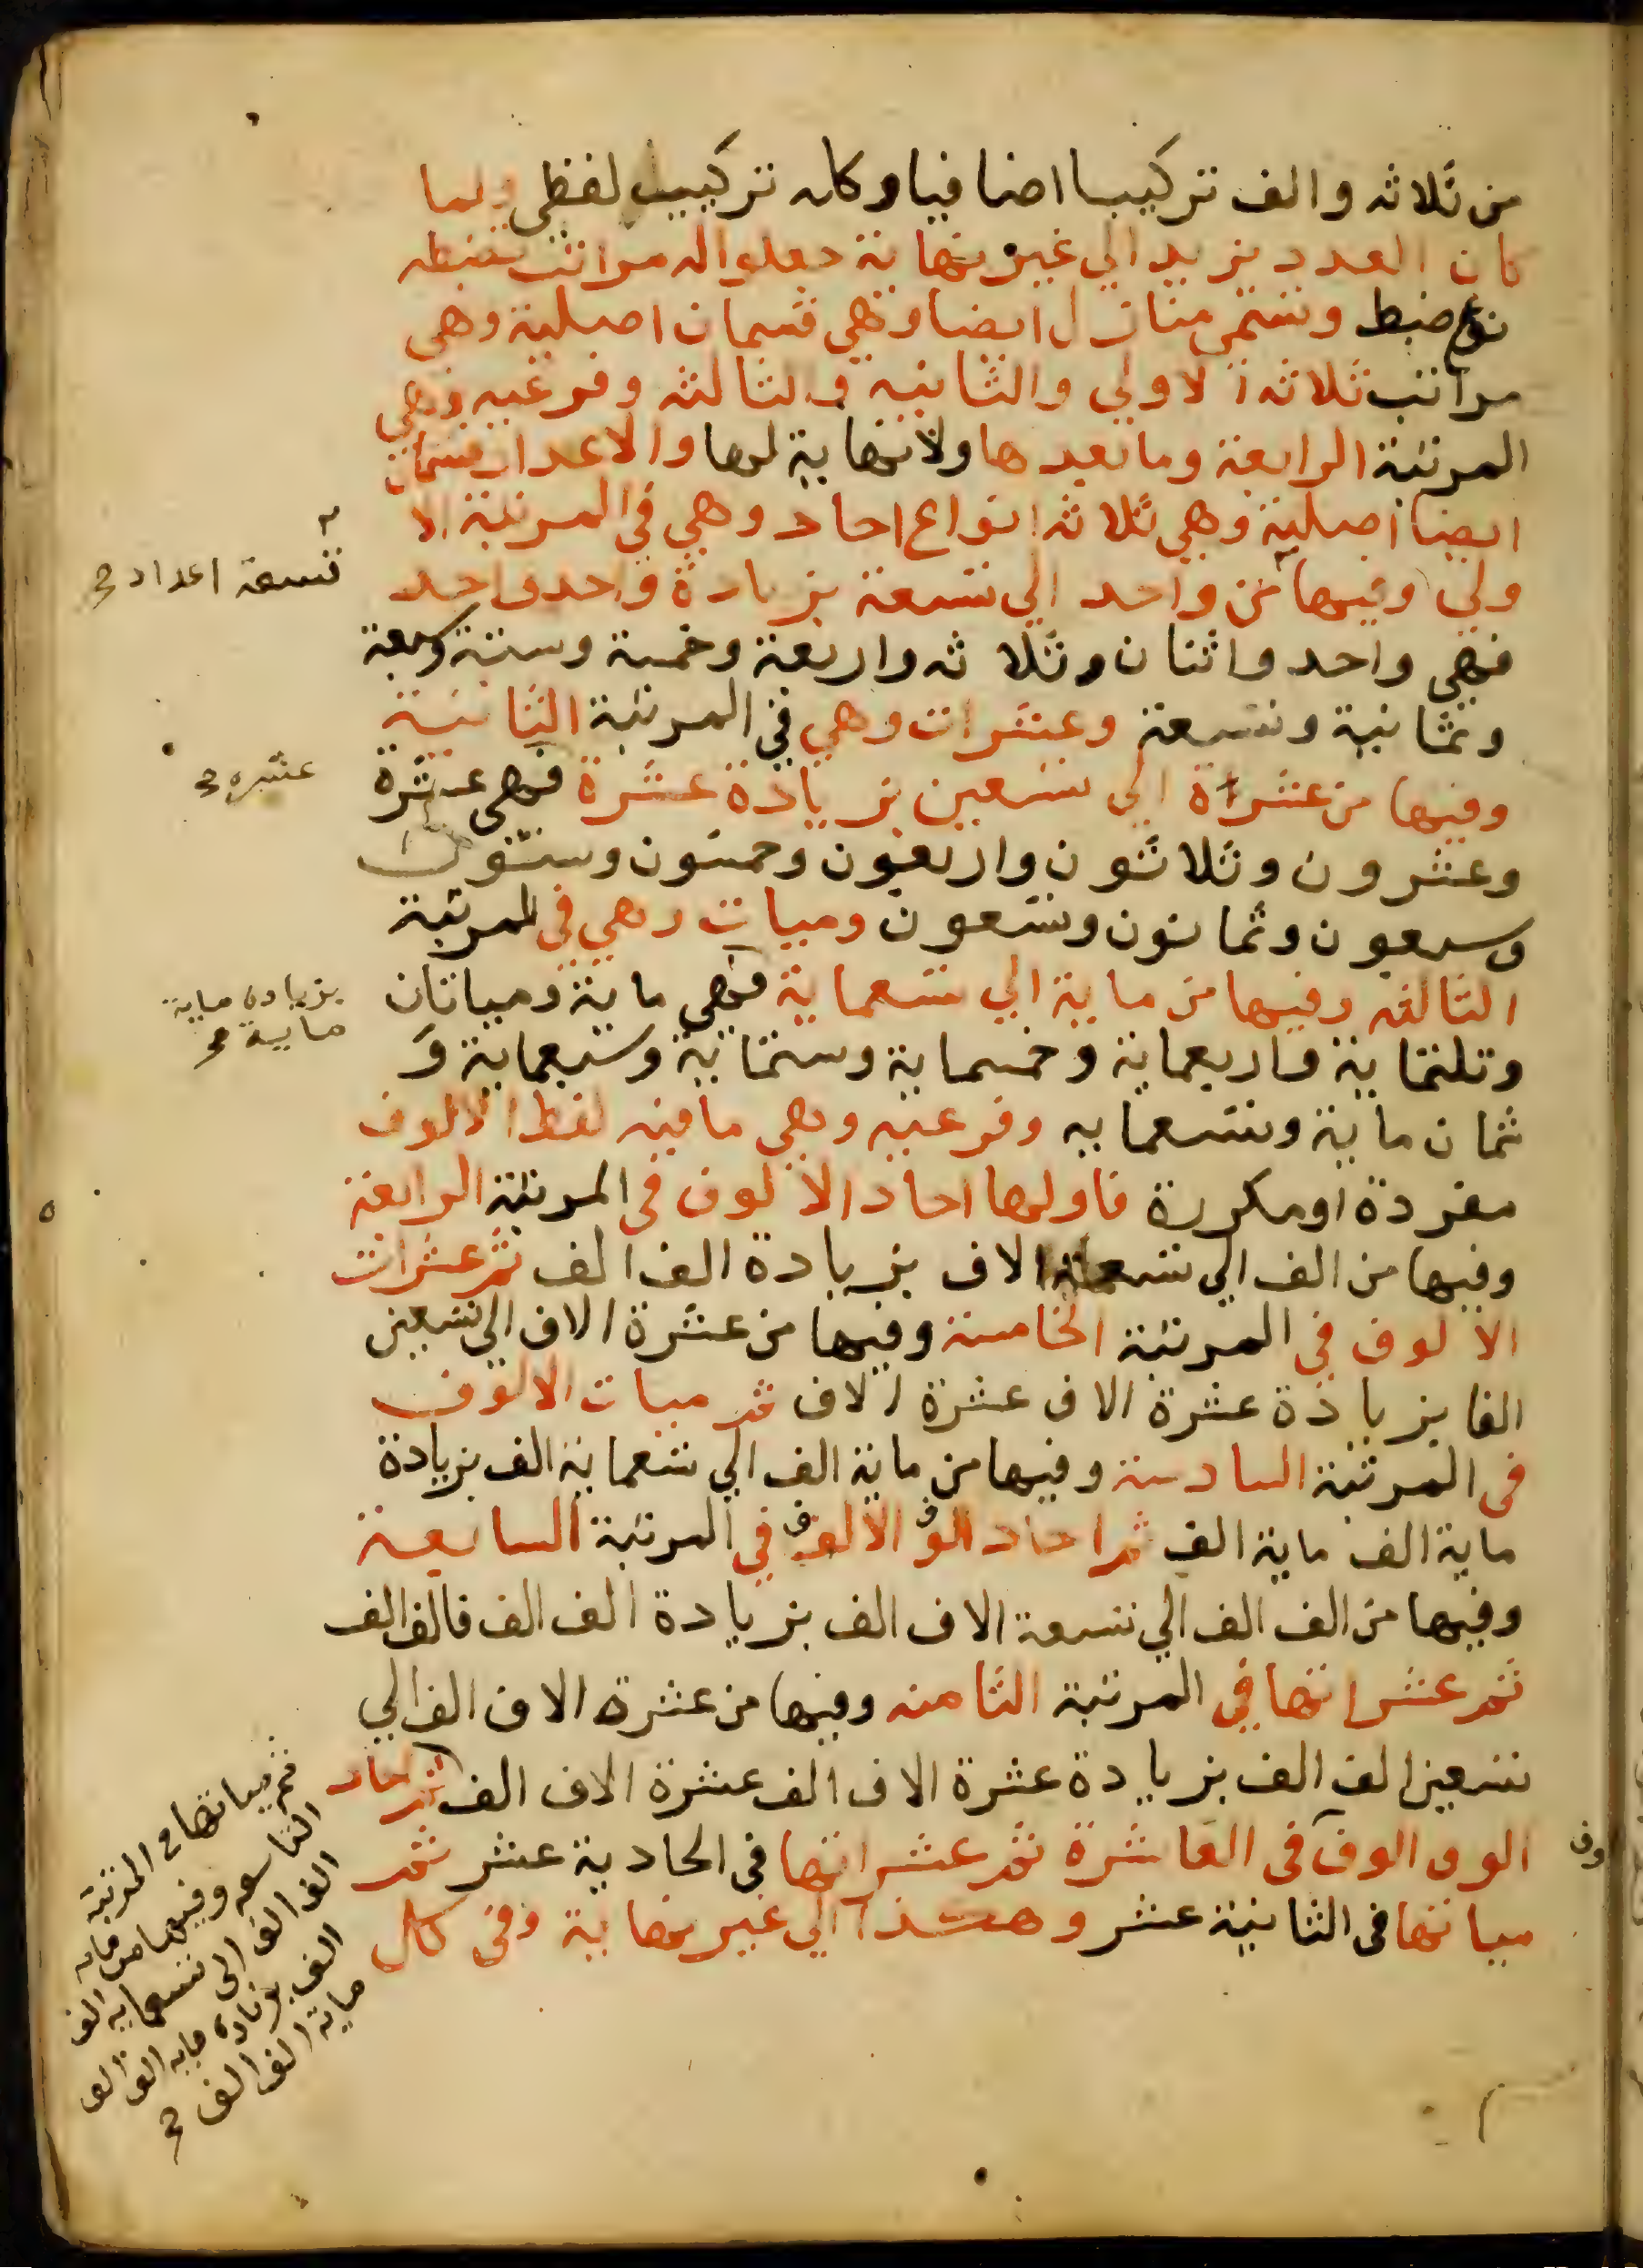 من ثلاثه والف تركيبا اضافيا وكله تركيب لفظي ولما
كان العدد يزيد الي غير نهاية جعلوا له مراتب تضبطه
نوع ضبط وتسمي منازل ايضا وهي قسمان اصلية وهي
مراتب ثلاثه الاولي والثانيه والثالثه وفرعيه وهي
المرتبة الرابعة وما بعدها ولا نهاية لها والاعداد قسمان
ايضا اصلية وهي ثلاثه انواع احاد وهي في المرتبة الا
ولي وفيها من واحد الي تسعة بزيادة واحد واحد
تسعة اعداد
فهي واحد واثنان وثلاثه واربعة وخمسة وستة وسبعة
وثمانية وتسعة وعشرات وهي في المرتبة الثانية
وفيها من عشرة الي تسعين بزيادة عشرة فهي عشرة
عشره
وعشرون وثلاثون واربعون وخمسون وستون
وسبعون وثمانون وتسعون وميات وهي في المرتبة
الثالثه وفيها من ماية الي تسعماية فهي ماية وميتان
بزيادة ماية
ماية
وثلثماية واربعماية وخمسماية وستماية وسبعماية و
ثمان ماية وتسعمايه وفرعيه وهي ما فيه لفظ الالوف
مفردة او مكررة فاولها احاد الالوف في المرتبة الرابعة
وفيها من الف الي تسعة الاف بزيادة الف الف ثم عشرات
الالوف في المرتبة الخامسة وفيها من عشرة الاف الي تسعين
الفا بزيادة عشرة الاف عشرة الاف ثم ميات الالوف
في المرتبة السادسة وفيها من ماية الف الي تسعماية الف بزيادة
ماية الف ماية الف ثم احاد الوف الالوف في المرتبة السابعة
وفيها من الف الف الي تسعة الاف الف بزيادة الف الف فالف الف
ثم عشراتها في المرتبة الثامنه وفيها من عشرة الاف الف الي
تسعين الف الف بزيادة عشرة الاف الف عشرة الاف الف ثم احاد
الوف الوف في العاشرة ثم عشراتها في الحادية عشر ثم
وف
مياتها في الثانية عشر وهكذا الي غير نهاية وفي كل
ثم مياتها في المرتبة
التاسعه وفيها من مايه
الف الف الي تسعمايه الف
الف بزيادة مايه الف الف
ماية الف الف